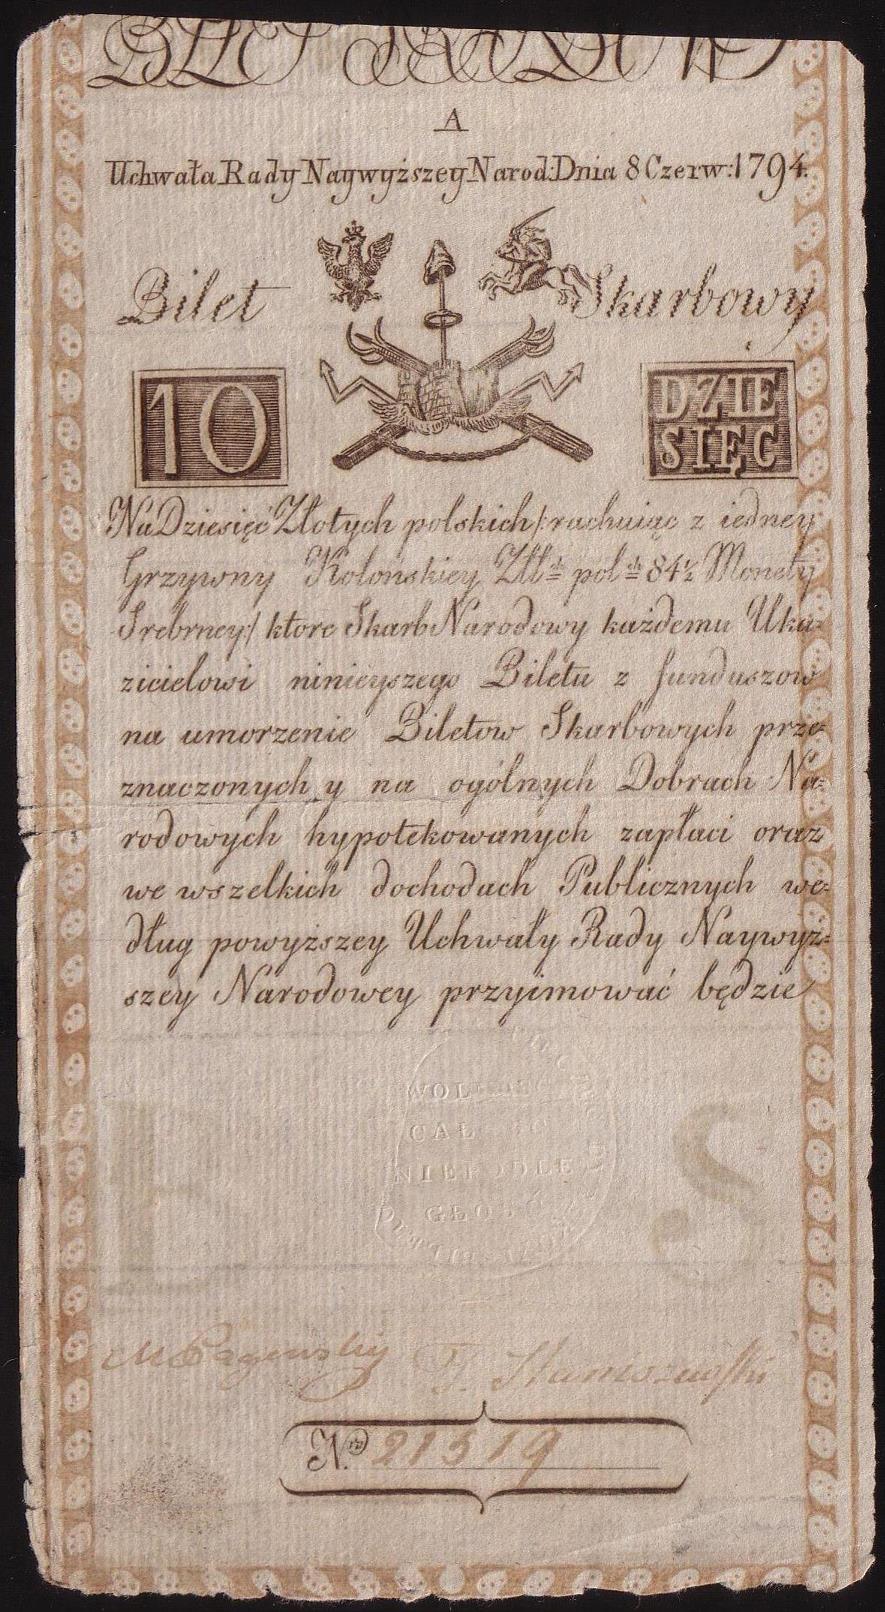 A
Uchwała Rady Naywyższey Narod: Dnia 8 Czerw: 1794.
Bilet Skarbowy
10
DZIE
SIĘĆ
Na Dziesięć Złotych polskich /:rachuiąc z iedney
Grzywny Kolońskiey Złł:ch pol:ch 84½ Monety
Srebrney:/ ktore Skarb Narodowy każdemu Uka=
zicielowi ninieyszego Biletu z funduszow
na umorzenie Biletow Skarbowych prze=
znaczonych y na ogólnych Dobrach Na=
rodowych hypotekowanych zapłaci oraz
we wszelkich dochodach Publicznych we=
dług powyższey Uchwały Rady Naywyż=
szey Narodowey przyimować będzie
WOLNOŚĆ
CAŁOŚĆ
NIEPODLE
GŁOŚĆ
F. Staniszewski
N.ro 21519